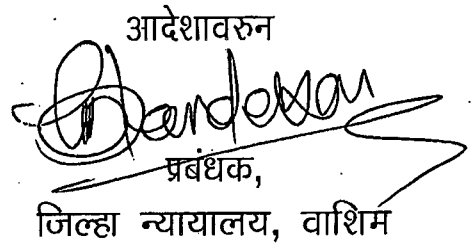 आदेशावरुन
प्रबंधक,
जिल्हा न्यायालय, वाशिम